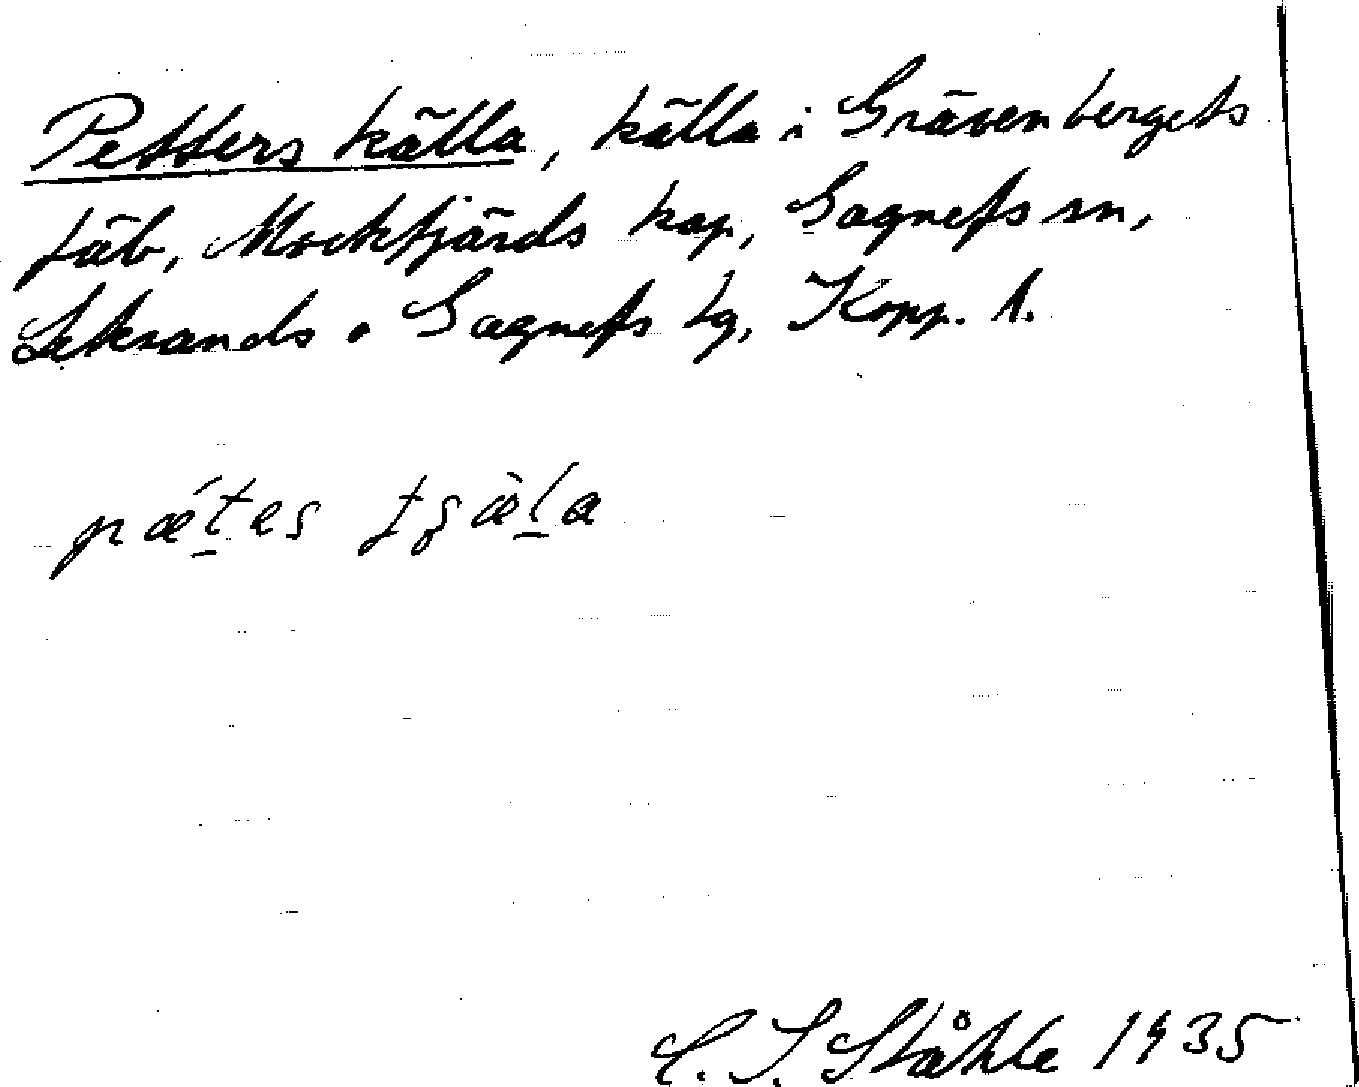 Petters källa, källa i Grävenbergets
fäb, Mockfjärds kap, Gagnefs sn,
Leksands o Gagnefs tg, Kopp. l.
pǽt̠es tʂæ̀l̠a
C. I. Ståhle 1935